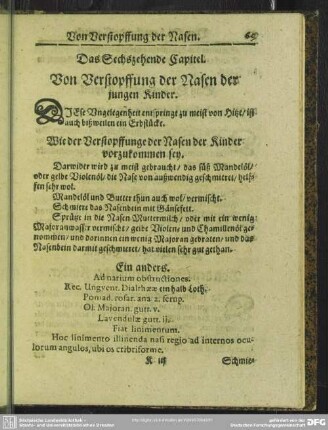 Von Verstopffung der Nasen. 65
Das Sechszehende Capitel.
Von Verstopffung der Nasen der
jungen Kinder.
DIese Vngelegenheit entspringt zu meist von Hitze/ ist
auch bißweilen ein Erbstücke.
Wie der Verstopffunge der Nasen der Kinder
vorzukommen sey.
Darwider wird zu meist gebraucht/ das süß Mandelöl/
oder gelbe Violenöl/ die Nase von außwendig geschmieret/ helf-
fen sehr wol.
Mandelöl vnd Butter thun auch wol/ vermischt.
Schmiere das Nasenbein mit Gänsefett.
Sprütze in die Nasen Muttermilch/ oder mit ein wenig
Majoranwasser vermischt/ gelbe Violen/ vnd Chamillenöl ge-
nommen/ vnd dorinnen ein wenig Majoran gebraten/ vnd das
Nasenbein darmit geschmieret/ hat vielen sehr gut gethan.
Ein anders.
Ad narium obstructiones.
Rec. Ungvent. Dialthææ ein halb Loth.
Pomad. rosar. ana 2. scrup.
Ol. Majoran. gutt. v.
Lavendulæ gutt. ii.
Fiat linimentum.
Hoc linimento illinenda nasi regio ad internos ocu-
lorum angulos, ubi os cribriforme.
K iij Schmie-